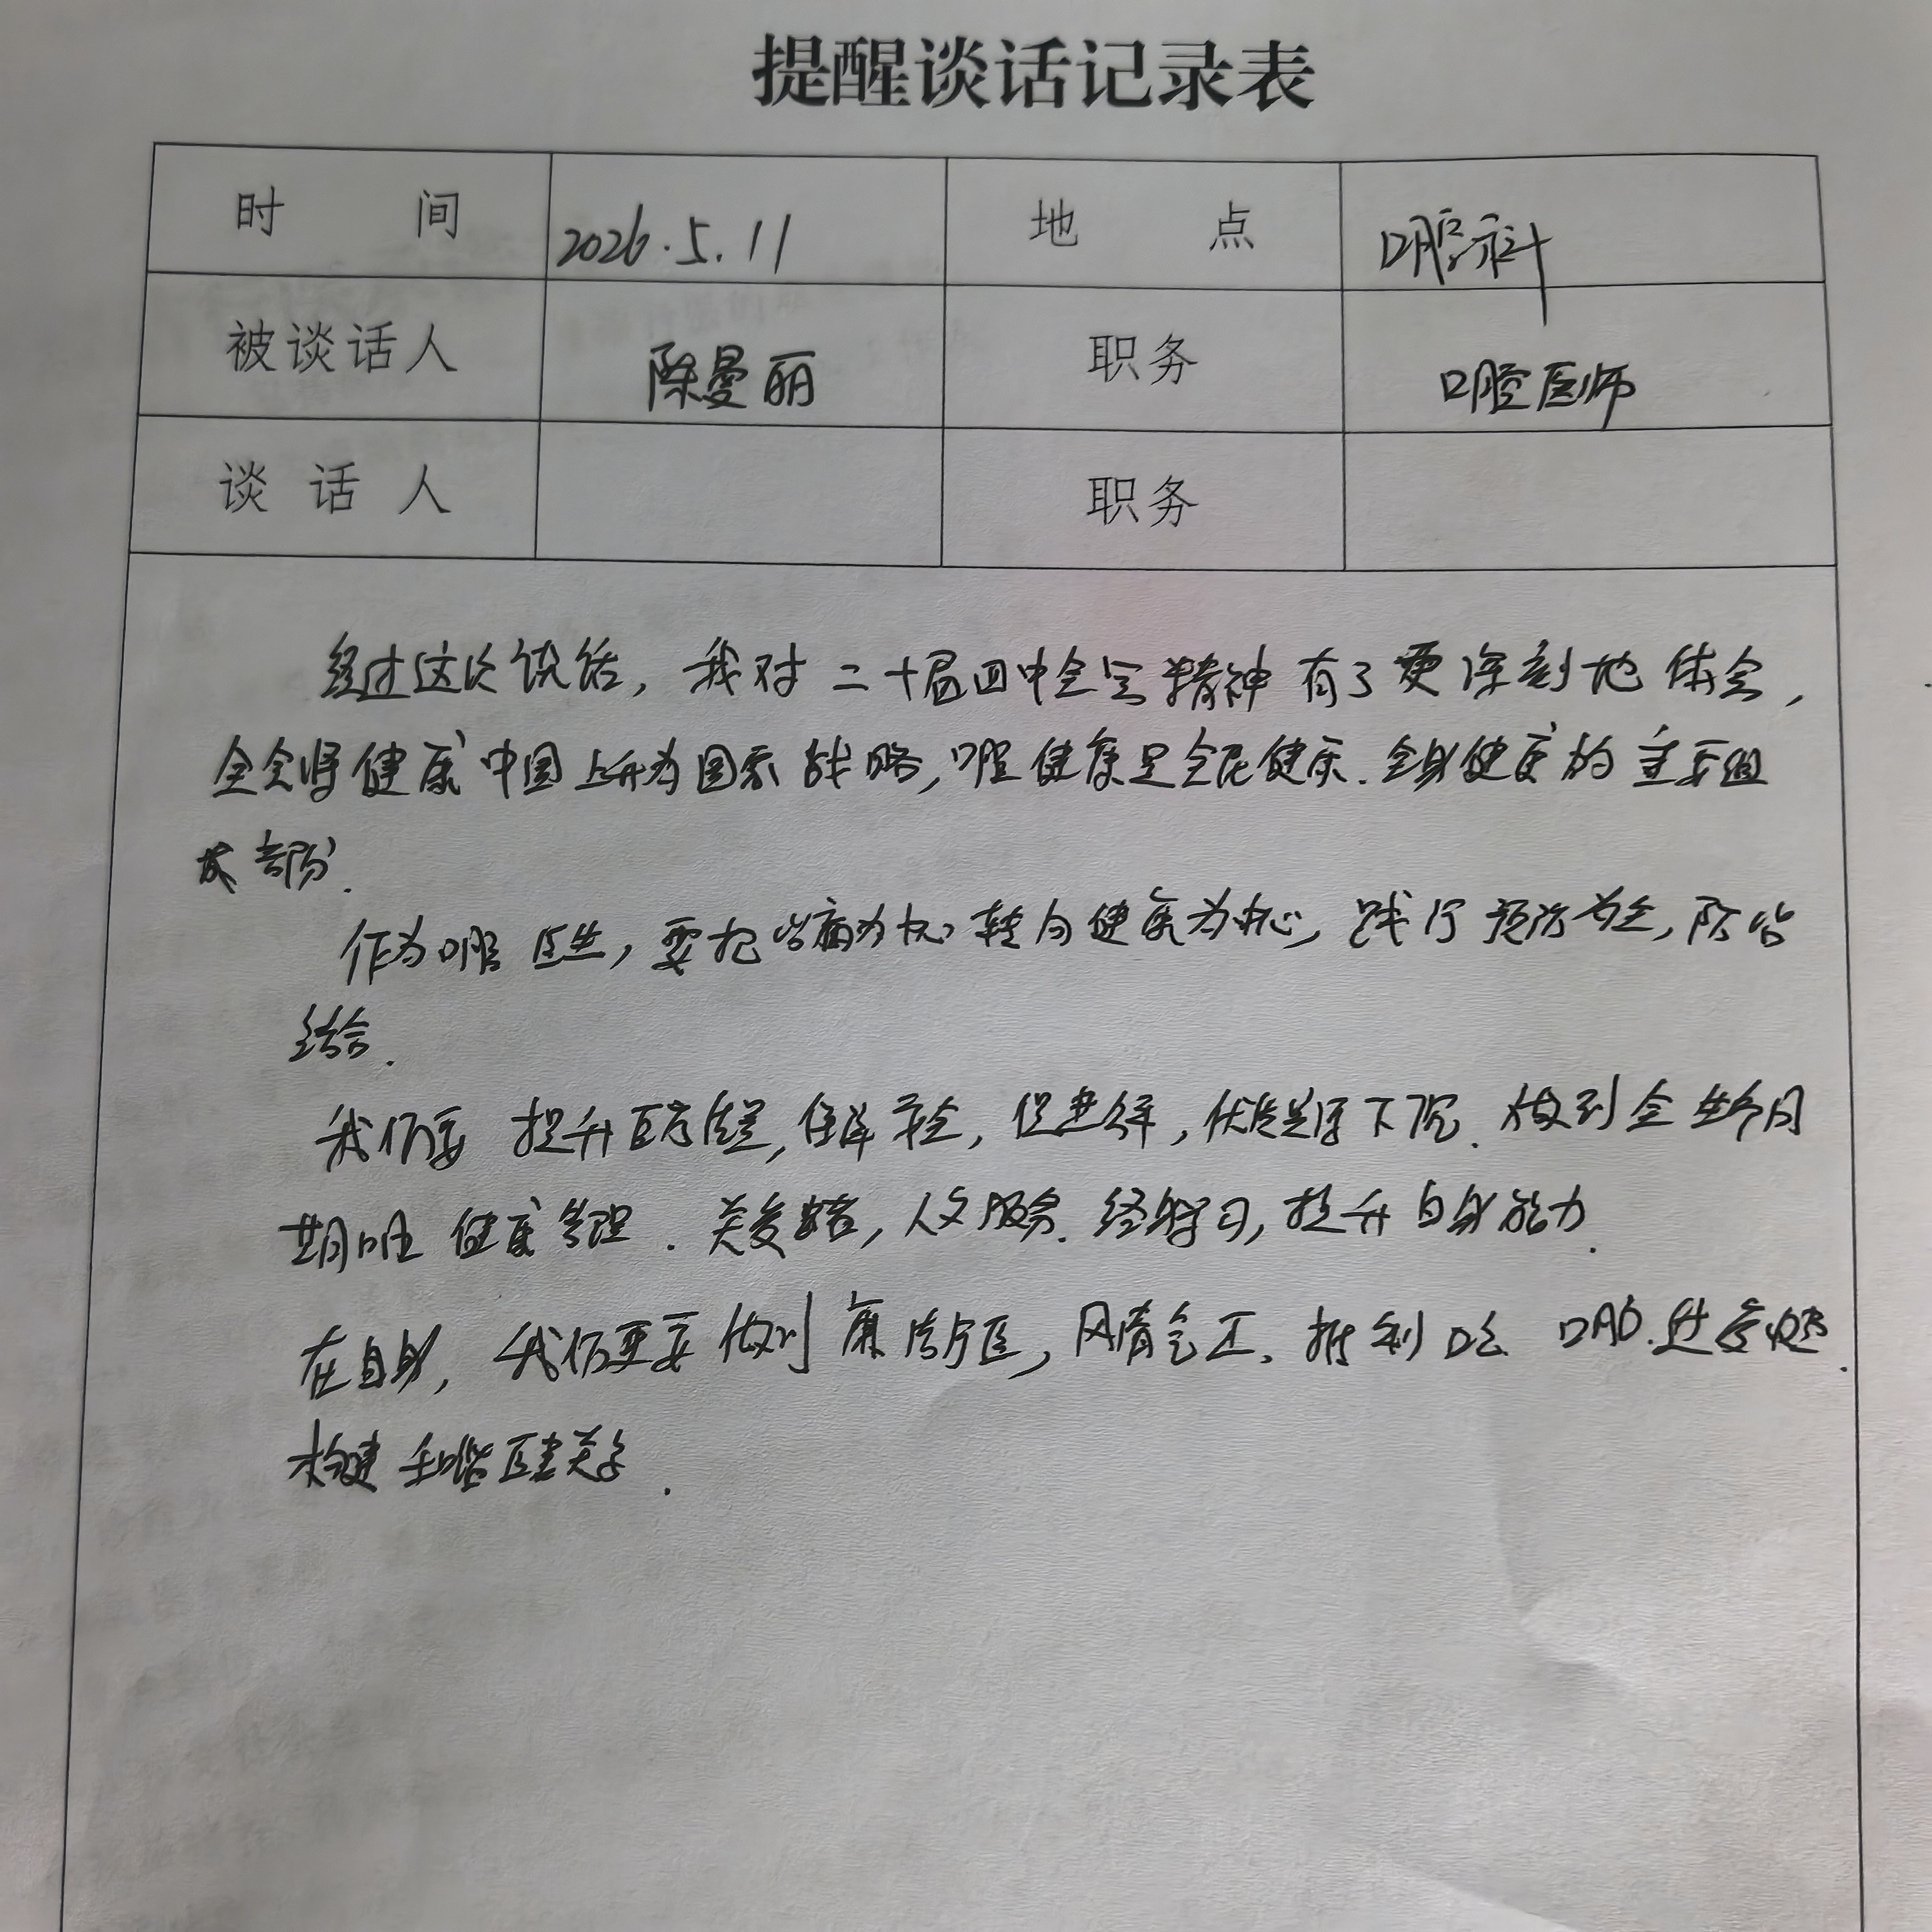 提醒谈话记录表
时间 2026.5.11 地点 口腔科
被谈话人 陈曼丽 职务 口腔医师
谈话人 职务
经过这次谈话，我对二十届四中全会精神有了更深刻地体会，
全会将健康中国上升为国家战略，口腔健康是全民健康.全身健康的主要组
成部分.
作为口腔医生，要把治病为中心转向健康为中心，践行预防为主，防治
结合.
我们要提升医疗质量,保障安全,促进,优质资源下沉.做到全生命周
期口腔健康管理.关爱患者,人文服务.经学习,提升自身能力.
在自身，我们更要做到廉洁行医，风清气正、拒利 过度
构建和谐医患关系.